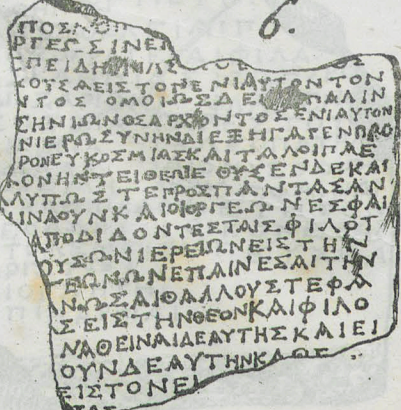 6.
ΡΓΕΩΣΙΝΕΠ
ΕΠΕΙΔΗ
ΟΥΣΑΕΙΣΤΟΝΕΝΙΑΥΤΟΝΤΟΝ
ΝΤΟΣ ΟΜΟΙΩΣΔΕ ΠΑΛΙΝ
ΣΗΝΙΩΝΟΣΑΡΧΟΝΤΟΣΕΝΙΑΥΤΟΝ
ΝΙΕΡΩΣΥΝΗΝΔΙΕΞΗΓΑΓΕΝΠΡΟ
ΡΟΝΕΥΚΟΣΜΙΑΣΚΑΙΤΑΛΟΙΠΑΕ
ΟΝΗΝΤΕΙΘΕΠΕΘΥΣΕΝΔΕΚΑΙ
ΛΥΠΩΣΤΕΠΡΟΣΠΑΝΤΑΣΑΝ
ΙΝΑΟΥΝΚΑΙΟΙΟΡΓΕΩΝΕΣΦΑΙ
ΑΠΟΔΙΔΟΝΤΕΣΤΑΙΣΦΙΛΟΤ
ΟΥΣΩΝΙΕΡΕΙΩΝΕΙΣΤΗΝ
ΓΕΩΝΩΝΕΠΑΙΝΕΣΑΙΤΗΝ
ΝΩΣΑΙΘΑΛΛΟΥΣΤΕΦΑ
ΑΣΕΙΣΤΗΝΘΕΟΝΚΑΙΦΙΛΟ
ΝΑΘΕΙΝΑΙΔΕΑΥΤΗΣΚΑΙΕΙ
ΟΥΝΔΕΑΥΤΗΝΚΑΘΕ
ΕΙΣΤΟΝΕΙ